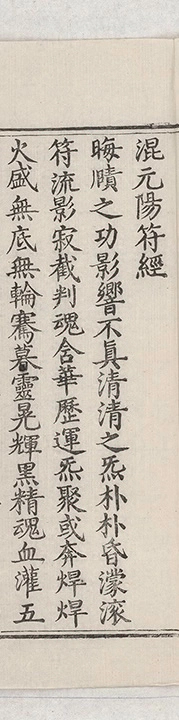 混元陽符經
晦賾之功影響不真清清之炁朴朴昏濛滚
符流影寂截判魂含華歷運炁聚或奔焊焊
火盛無底無輪騫暮靈晃輝黑精魂血灌五